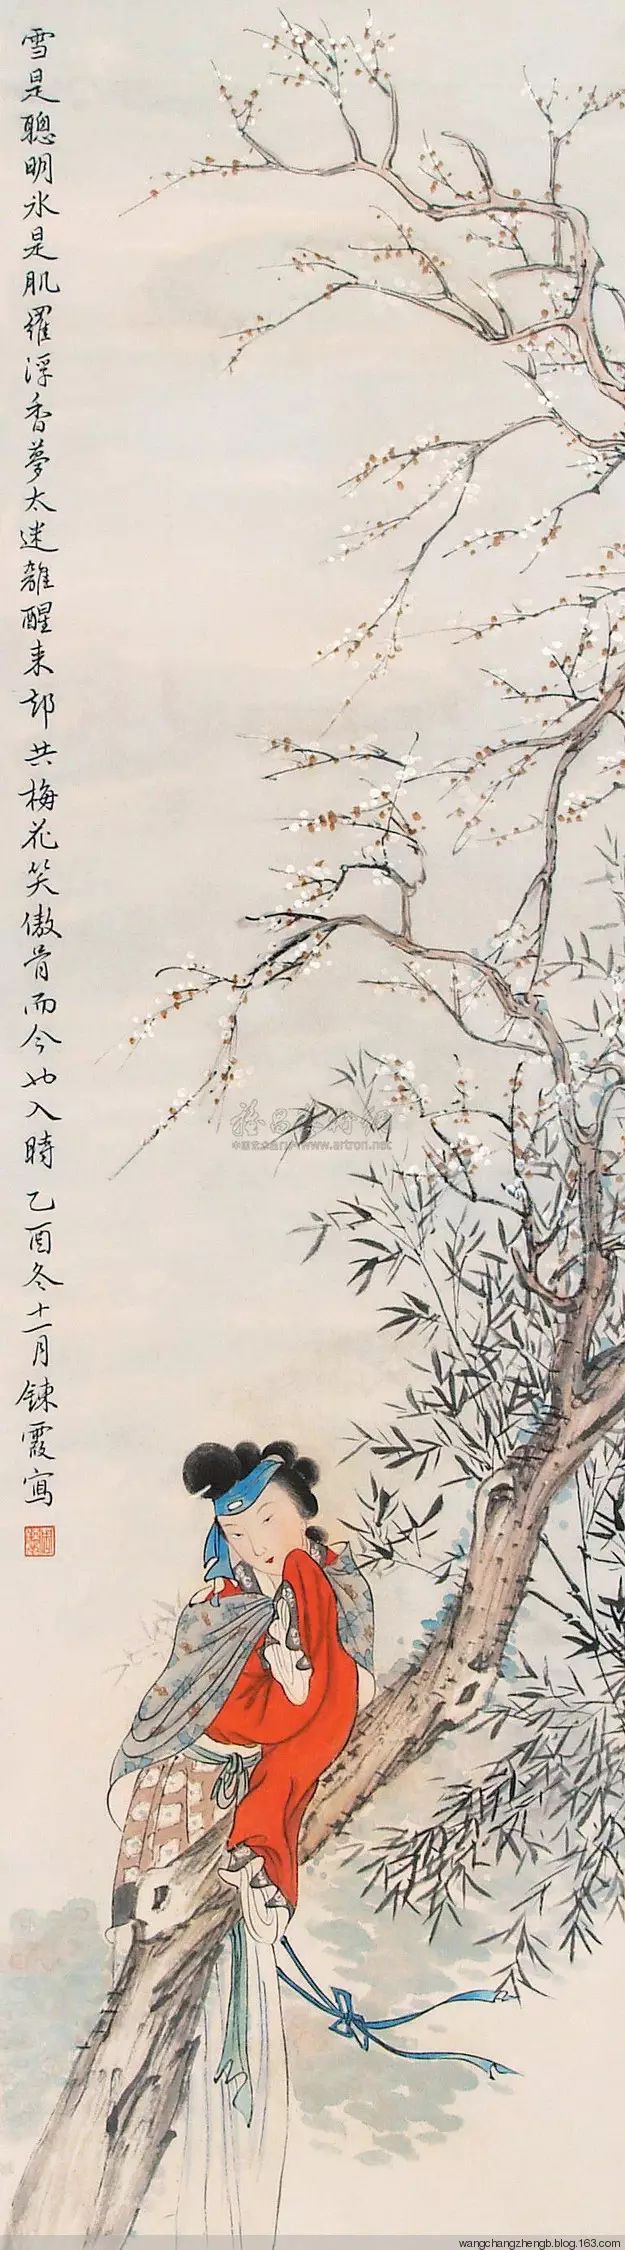 雪是聰明氷是肌羅浮香夢太迷離醒來却共梅花笑傲骨而今也入時 乙酉冬十一月 鍊霞寫
www.artron.net
wangchangzhengb.blog.163.com